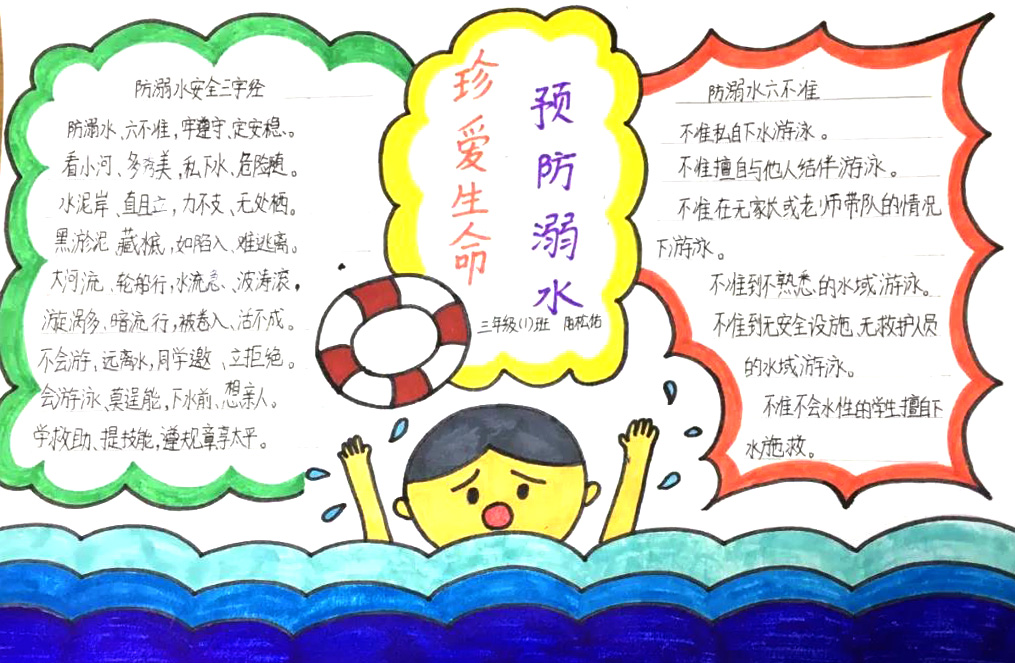 防溺水安全三字经
防溺水、六不准，牢遵守、定安稳。
看小河、多秀美，私下水、危险随。
水泥岸、直且立，力不支、无处栖。
黑淤泥、藏河底，如陷入、难逃离。
大河流、轮船行，水流急、波涛滚，
漩涡多、暗流行，被卷入、活不成。
不会游、远离水，同学邀、立拒绝。
会游泳、莫逞能，下水前、想亲人。
学救助、提技能，遵规章享太平。
珍爱生命
预防溺水
三年级(1)班
防溺水六不准
不准私自下水游泳。
不准擅自与他人结伴游泳。
不准在无家长或老师带队的情况
下游泳。
不准到不熟悉的水域游泳。
不准到无安全设施、无救护人员
的水域游泳。
不准不会水性的学生擅自下
水施救。